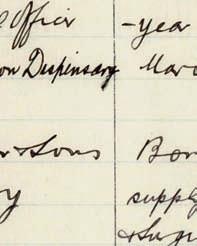 Officer -year
on Dispensary Mar
r & Sons Bor
y supply
& Su